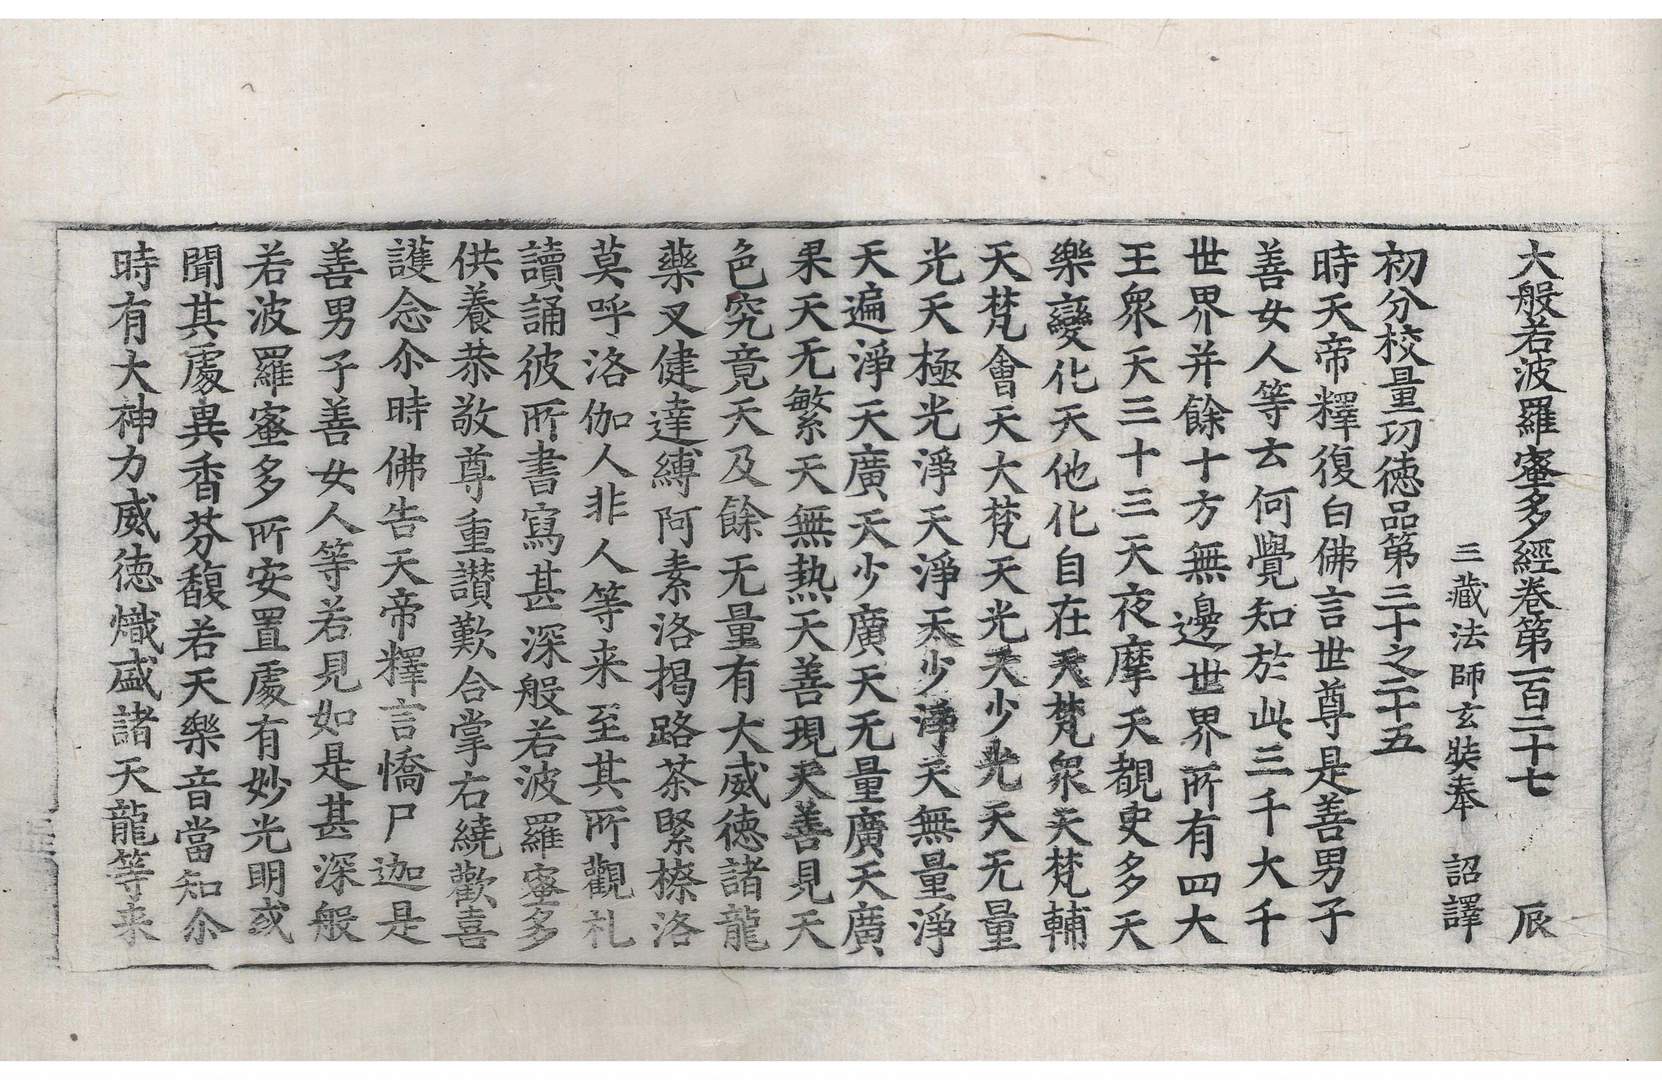 大般若波羅蜜多經卷第一百二十七 辰
三藏法師玄奘奉 詔譯
初分校量功德品第三十之二十五
時天帝釋復白佛言世尊是善男子
善女人等云何覺知於此三千大千
世界并餘十方無邊世界所有四大
王眾天三十三天夜摩天覩史多天
樂變化天他化自在天梵眾天梵輔
天梵會天大梵天光天少光天无量
光天極光淨天淨天少淨天無量淨
天遍淨天廣天少廣天无量廣天廣
果天无繁天無熱天善現天善見天
色究竟天及餘无量有大威德諸龍
藥叉健達縛阿素洛揭路荼緊捺洛
莫呼洛伽人非人等来至其所觀礼
讀誦彼所書寫甚深般若波羅蜜多
供養恭敬尊重讚歎合掌右繞歡喜
護念尒時佛告天帝釋言憍尸迦是
善男子善女人等若見如是甚深般
若波羅蜜多所安置處有妙光明或
聞其處異香芬馥若天樂音當知尒
時有大神力威德熾盛諸天龍等来